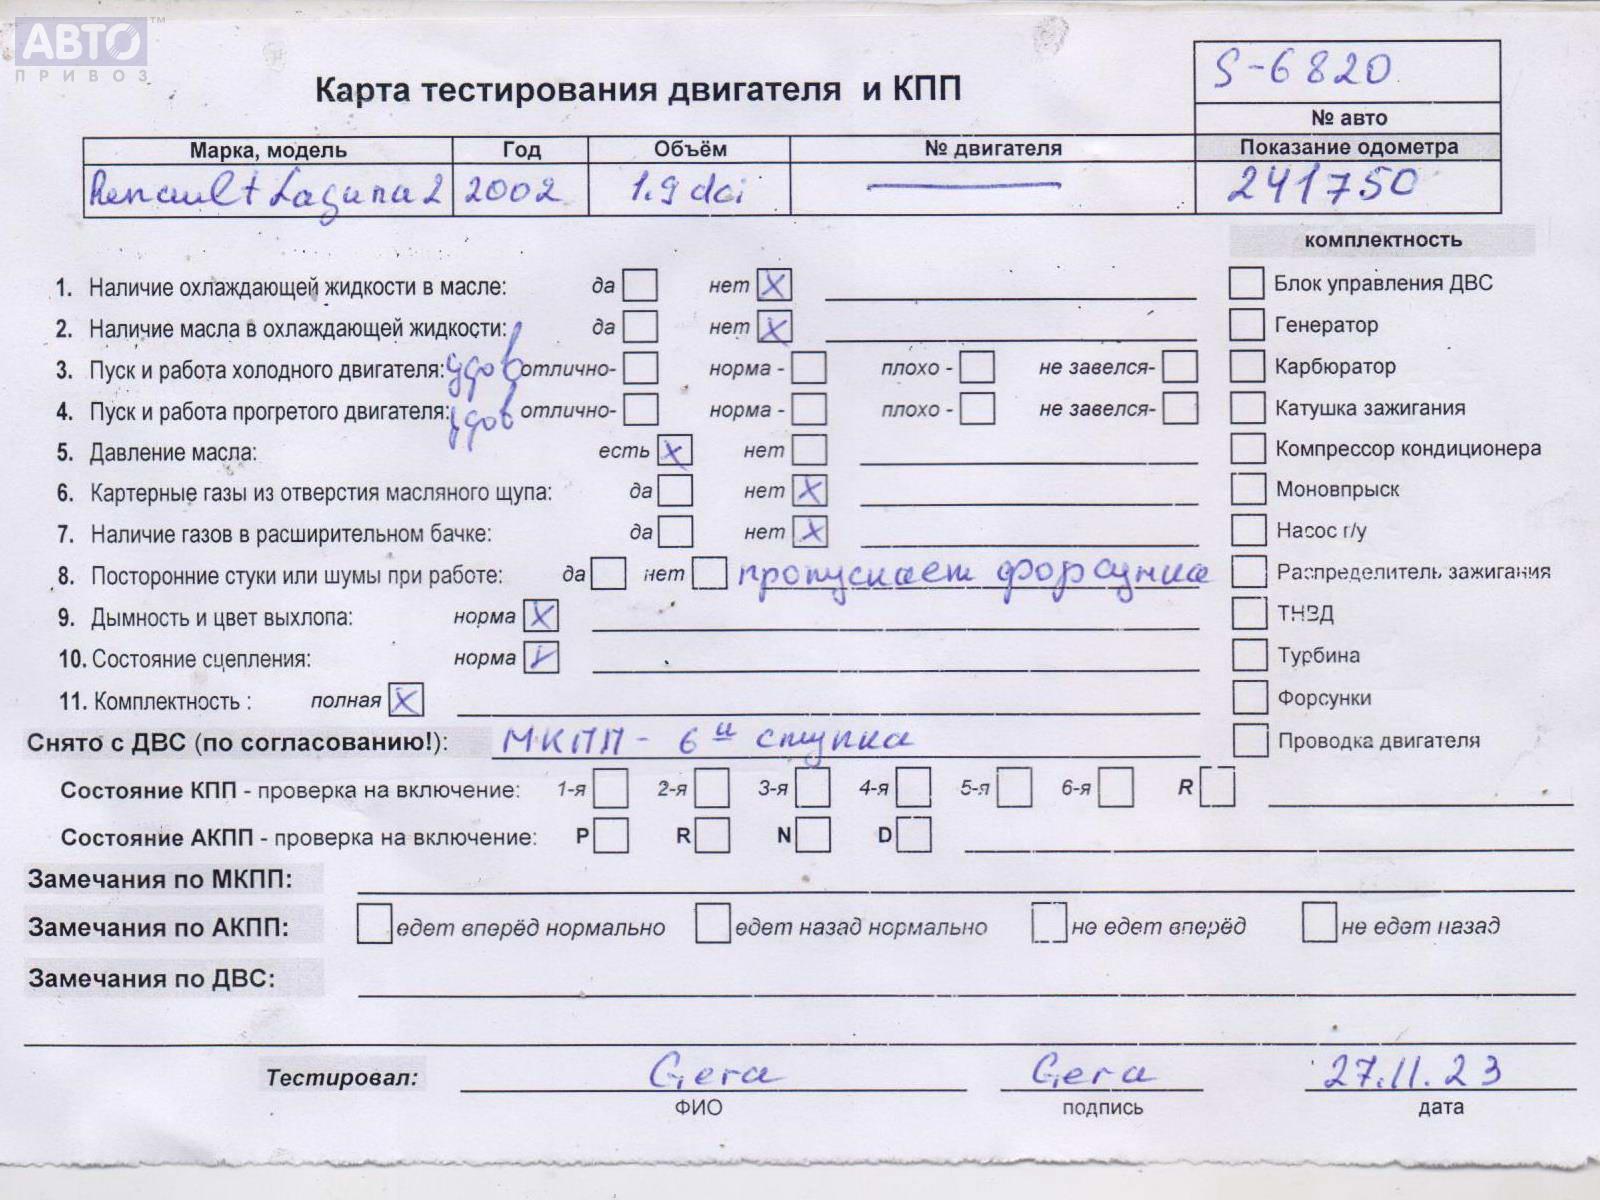 АВТО™
ПРИВОЗ
S-6820
Карта тестирования двигателя и КПП
№ авто
Марка, модель Год Объём № двигателя Показание одометра
Renault Laguna 2 2002 1.9 dci 241750
комплектность
1. Наличие охлаждающей жидкости в масле: да нет X Блок управления ДВС
2. Наличие масла в охлаждающей жидкости: да нет X Генератор
3. Пуск и работа холодного двигателя: удов отлично- норма - плохо - не завелся- Карбюратор
4. Пуск и работа прогретого двигателя: удов отлично- норма - плохо - не завелся- Катушка зажигания
5. Давление масла: есть X нет Компрессор кондиционера
6. Картерные газы из отверстия масляного щупа: да нет X Моновпрыск
7. Наличие газов в расширительном бачке: да нет X Насос г/у
8. Посторонние стуки или шумы при работе: да нет пропускает форсунка Распределитель зажигания
9. Дымность и цвет выхлопа: норма X ТНВД
10. Состояние сцепления: норма V Турбина
11. Комплектность : полная X Форсунки
Снято с ДВС (по согласованию!): МКПП - 6 и ступка Проводка двигателя
Состояние КПП - проверка на включение: 1-я 2-я 3-я 4-я 5-я 6-я R
Состояние АКПП - проверка на включение: P R N D
Замечания по МКПП:
Замечания по АКПП: едет вперёд нормально едет назад нормально не едет вперёд не едет назад
Замечания по ДВС:
Тестировал: Gera Gera 27.11.23
ФИО подпись дата